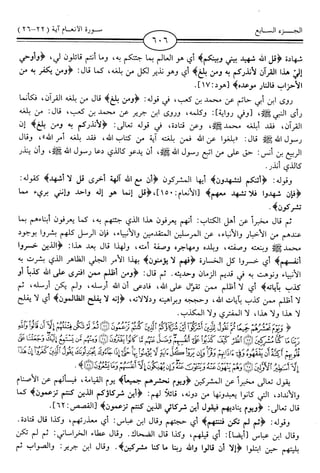 الجزء السابع
٦٠٦
سورة الأنعام آية (٢٢-٢٦)
شهادة ﴿قل الله شهيد بيني وبينكم﴾ أي هو العالم بما جئتكم به، وما أنتم قائلون لي، ﴿وأوحي
إليّ هذا القرآن لأنذركم به ومن بلغ﴾ أي وهو نذير لكل من بلغه، كما قال: ﴿ومن يكفر به من
الأحزاب فالنار موعده﴾ [هود: ١٧].
روى ابن أبي حاتم عن محمد بن كعب، في قوله: ﴿ومن بلغ﴾ قال من بلغه القرآن، فكأنما
رأى النبي ﷺ، [وفي رواية]: وكلمه، وروى ابن جرير عن محمد بن كعب، قال: من بلغه
القرآن، فقد أبلغه محمد ﷺ، وعن قتادة، في قوله تعالى: ﴿لأنذركم به ومن بلغ﴾ إن
رسول الله ﷺ قال: «بلغوا عن الله فمن بلغته آية من كتاب الله، فقد بلغه أمر الله»، وقال
الربيع بن أنس: حق على من اتبع رسول الله ﷺ، أن يدعو كالذي دعا رسول الله ﷺ، وأن ينذر
كالذي أنذر.
وقوله: ﴿أئنكم لتشهدون﴾ أيها المشركون ﴿أن مع الله آلهة أخرى قل لا أشهد﴾ كقوله:
﴿فإن شهدوا فلا تشهد معهم﴾ [الأنعام: ١٥٠]، ﴿قل إنما هو إله واحد وإنني بريء مما
تشركون﴾.
ثم قال مخبراً عن أهل الكتاب: أنهم يعرفون هذا الذي جئتهم به، كما يعرفون أبناءهم بما
عندهم من الأخبار والأنباء، عن المرسلين المتقدمين والأنبياء، فإن الرسل كلهم بشروا بوجود
محمد ﷺ وبنعته وصفته، وبلده ومهاجره وصفة أمته، ولهذا قال بعد هذا: ﴿الذين خسروا
أنفسهم﴾ أي خسروا كل الخسارة ﴿فهم لا يؤمنون﴾ بهذا الأمر الجلي الظاهر الذي بشرت به
الأنبياء ونوهت به في قديم الزمان وحديثه. ثم قال: ﴿ومن أظلم ممن افترى على الله كذباً أو
كذب بآياته﴾ أي لا أظلم ممن تقوّل على الله، فادعى أن الله أرسله، ولم يكن أرسله، ثم
لا أظلم ممن كذب بآيات الله، وحججه وبراهينه ودلالاته، ﴿إنه لا يفلح الظالمون﴾ أي لا يفلح
لا هذا ولا هذا، لا المفتري ولا المكذب.
﴿وَيَوْمَ نَحْشُرُهُمْ جَمِيعًا ثُمَّ نَقُولُ لِلَّذِينَ أَشْرَكُوا أَيْنَ شُرَكَاؤُكُمُ الَّذِينَ كُنْتُمْ تَزْعُمُونَ ۝ ثُمَّ لَمْ تَكُنْ فِتْنَتُهُمْ إِلَّا أَنْ قَالُوا وَاللَّهِ
يقول تعالى مخبراً عن المشركين ﴿ويوم نحشرهم جميعاً﴾ يوم القيامة، فيسألهم عن الأصنام
والأنداد، التي كانوا يعبدونها من دونه، قائلاً لهم: ﴿أين شركاؤكم الذين كنتم تزعمون﴾ كما
قال تعالى: ﴿ويوم يناديهم فيقول أين شركائي الذين كنتم تزعمون﴾ [القصص: ٦٢].
وقوله: ﴿ثم لم تكن فتنتهم﴾ أي حجتهم وقال ابن عباس: أي معذرتهم، وكذا قال قتادة.
وقال ابن عباس [أيضاً]: أي قيلهم، وكذا قال الضحاك. وقال عطاء الخراساني: ثم لم تكن
بليتهم حين ابتلوا ﴿إلا أن قالوا والله ربنا ما كنا مشركين﴾. وقال ابن جرير: والصواب ثم